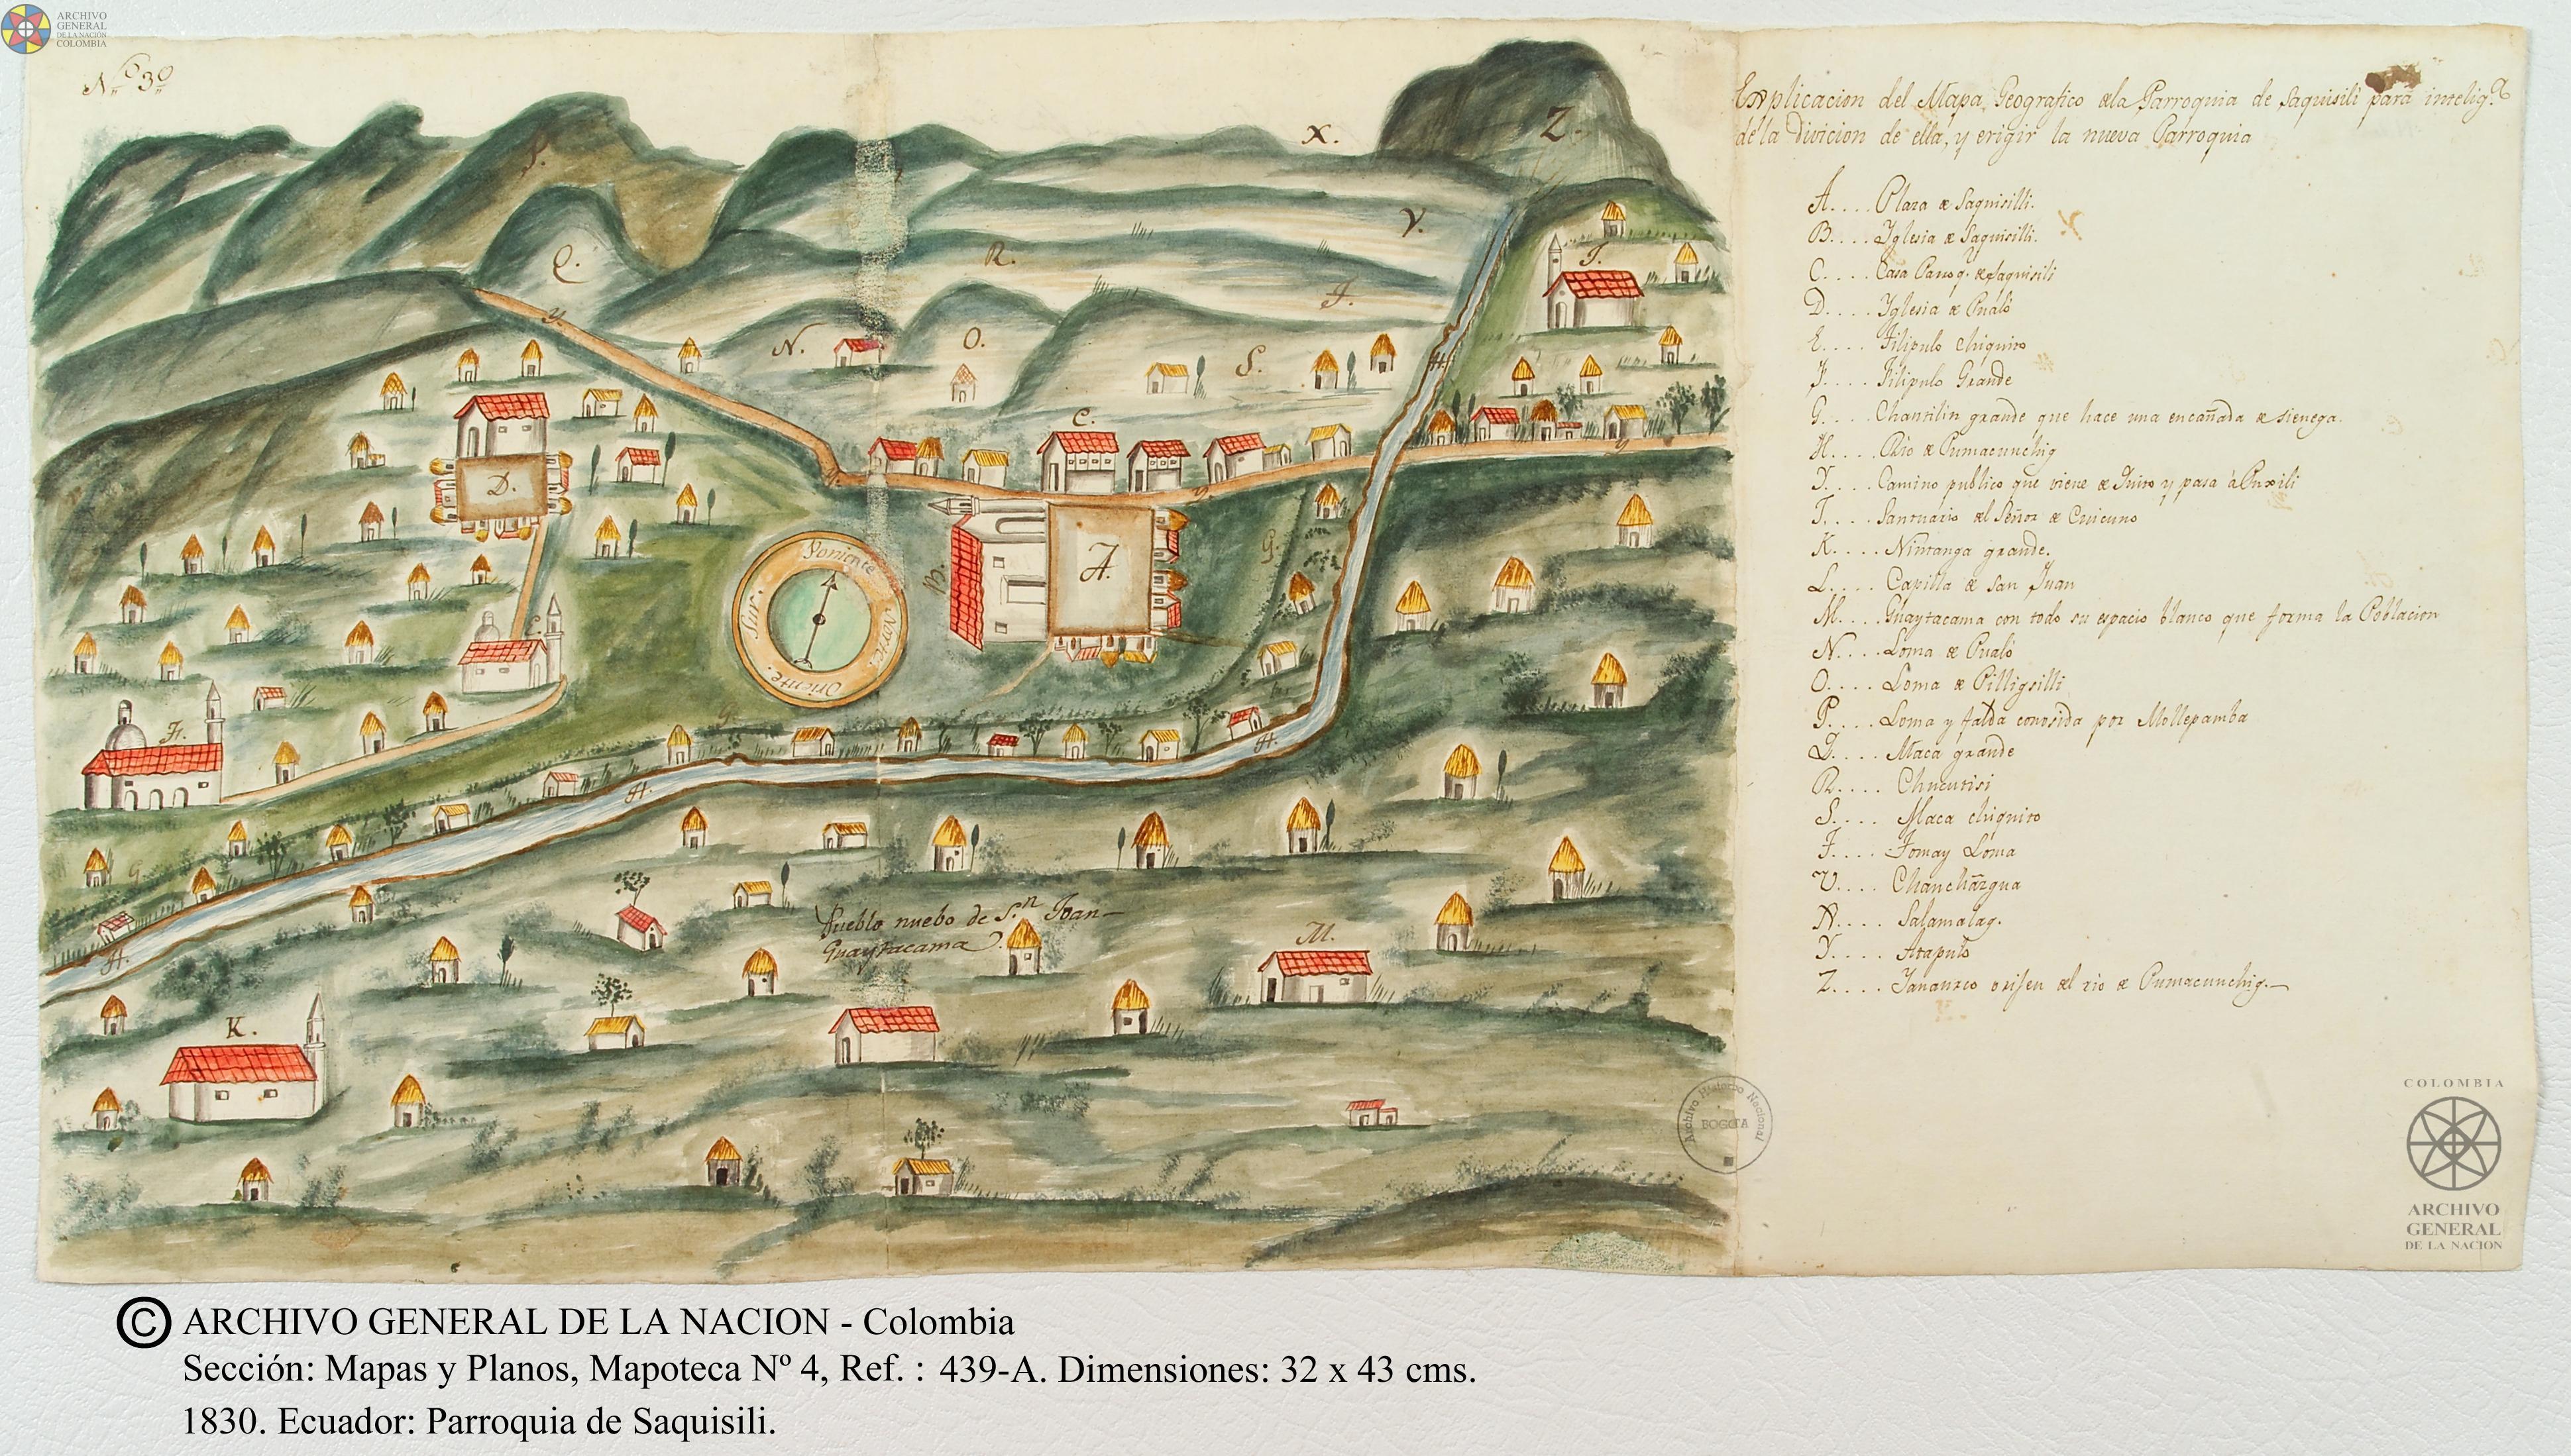 ARCHIVO
GENERAL
DE LA NACIÓN
COLOMBIA
Nº 3º
Explicacion del Mapa Geografico dela Parroquia de Saquisili para intelig.ª
de la divicion de ella, y erigir la nueva Parroquia
A.... Plaza de Saquisilli.
B.... Iglesia de Saquisilli.
C.... Casa Parroq. de Saquisili
D.... Iglesia de Pualó
E.... Tilipulo chiquito
F.... Tilipulo Grande
G.... Chantilin grande que hace una encañada de sienega.
H.... Rio de Pumacunchig
Y.... Camino publico que viene de Quito y pasa à Puxili
J.... Santuario del Señor de Cuicuno
K.... Nintanga grande.
L.... Capilla de San Juan
M.... Guaytacama con todo su espacio blanco que forma la Poblacion
N.... Loma de Pualó
O.... Loma de Pilligsilli
P.... Loma y falda conosida por Mollepamba
Q.... Maca grande
R.... Chucutisi
S.... Maca chiquito
T.... Tomay Loma
V.... Chanchãgua
X.... Salamalag.
Y.... Atapulo
Z.... Yanaurco orijen del rio de Pumacunchig.
X.
Z.
P.
Q.
R.
V.
J.
T.
y.
N.
O.
S.
H.
C.
y.
y.
y.
D.
B.
A.
G.
Poniente
Norte
Oriente.
Sur.
E.
F.
G.
H.
H.
G.
H.
Pueblo nuebo de S.n Joan
Guaytacama
M.
K.
Archivo Historico Nacional
BOGOTA
COLOMBIA
ARCHIVO
GENERAL
DE LA NACION
© ARCHIVO GENERAL DE LA NACION - Colombia
Sección: Mapas y Planos, Mapoteca Nº 4, Ref. : 439-A. Dimensiones: 32 x 43 cms.
1830. Ecuador: Parroquia de Saquisili.